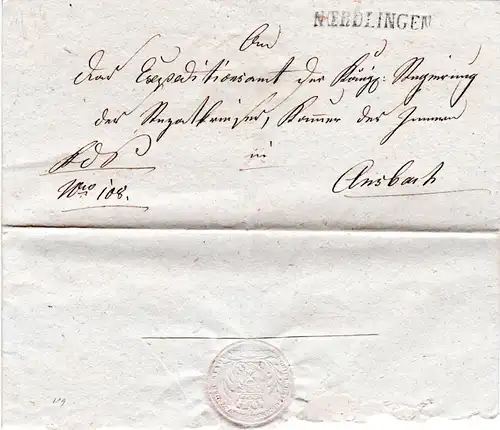 NŒRDLINGEN
An
das Expeditionsamt der Königl: Regierung
des Rezatkreises, Kammer des Innern
in
Ansbach
Nro 108.